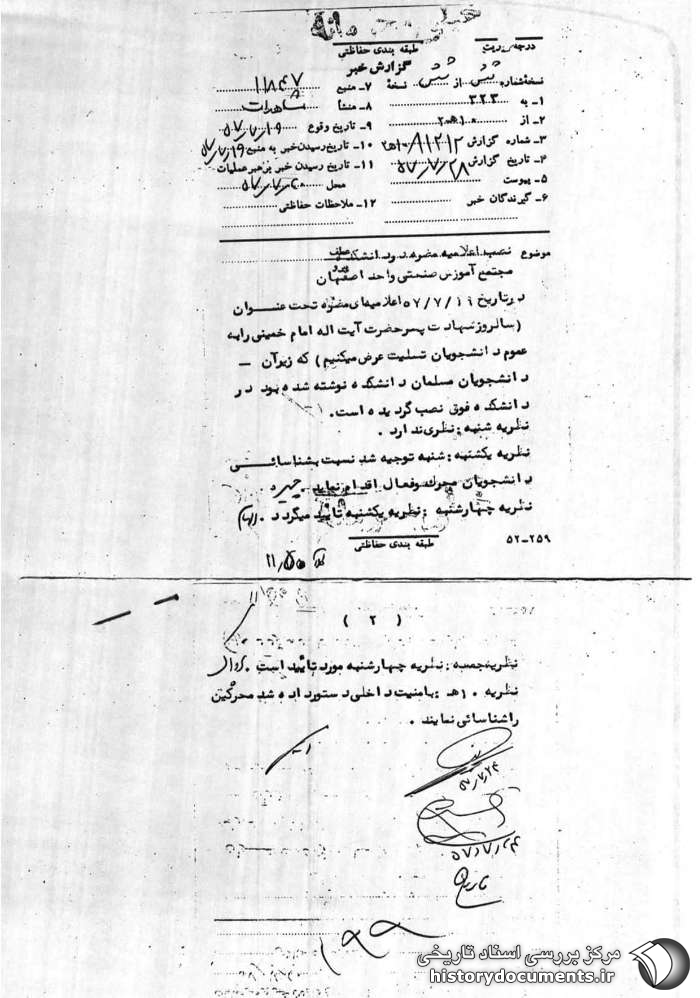 درجه فوریت
طبقه بندی حفاظتی
گزارش خبر
نسخهٔ شماره شش از شش نسخهٔ
۱- به ۳۲۳
۲- از ۱۰ه۲
۳- شماره گزارش
۴- تاریخ گزارش ۵۷/۷/۲۸
۵- پیوست
۶- گیرندگان خبر
۷- منبع ۱۱۸۴۷
۸- منشأ مشاهدات
۹- تاریخ وقوع ۵۷/۷/۱۹
۱۰- تاریخ رسیدن خبر به منبع ۵۷/۷/۱۹
۱۱- تاریخ رسیدن خبر به رهبر عملیات
محل ۵۷/۷/۲۰
۱۲- ملاحظات حفاظتی
موضوع نصب اعلامیه مضره در دانشکده
مجتمع آموزش صنعتی واحد اصفهان
در تاریخ ۵۷/۷/۱۹ اعلامیه‌ای مضره تحت عنوان
(سالروز شهادت پسر حضرت آیت اله امام خمینی را به
عموم دانشجویان تسلیت عرض میکنیم) که زیر آن –
دانشجویان مسلمان دانشکده نوشته شده بود در
دانشکده فوق نصب گردیده است.
نظریه شنبه : نظری ندارد .
نظریه یکشنبه : شنبه توجیه شد نسبت بشناسائی
دانشجویان محرک وفعال اقدام نماید .
نظریه چهارشنبه : نظریه یکشنبه تائید میگردد .
۵۲-۲۵۹
طبقه بندی حفاظتی
( ۲ )
نظریه جمعه : نظریه چهارشنبه مورد تائید است .
نظریه ۱۰ هـ : بامنیت داخلی دستور داده شد محرکین
را شناسائی نمایند .
۵۷/۷/۲۴
۵۷/۷/۲۴
۱۹۹
مرکز بررسی اسناد تاریخی
historydocuments.ir